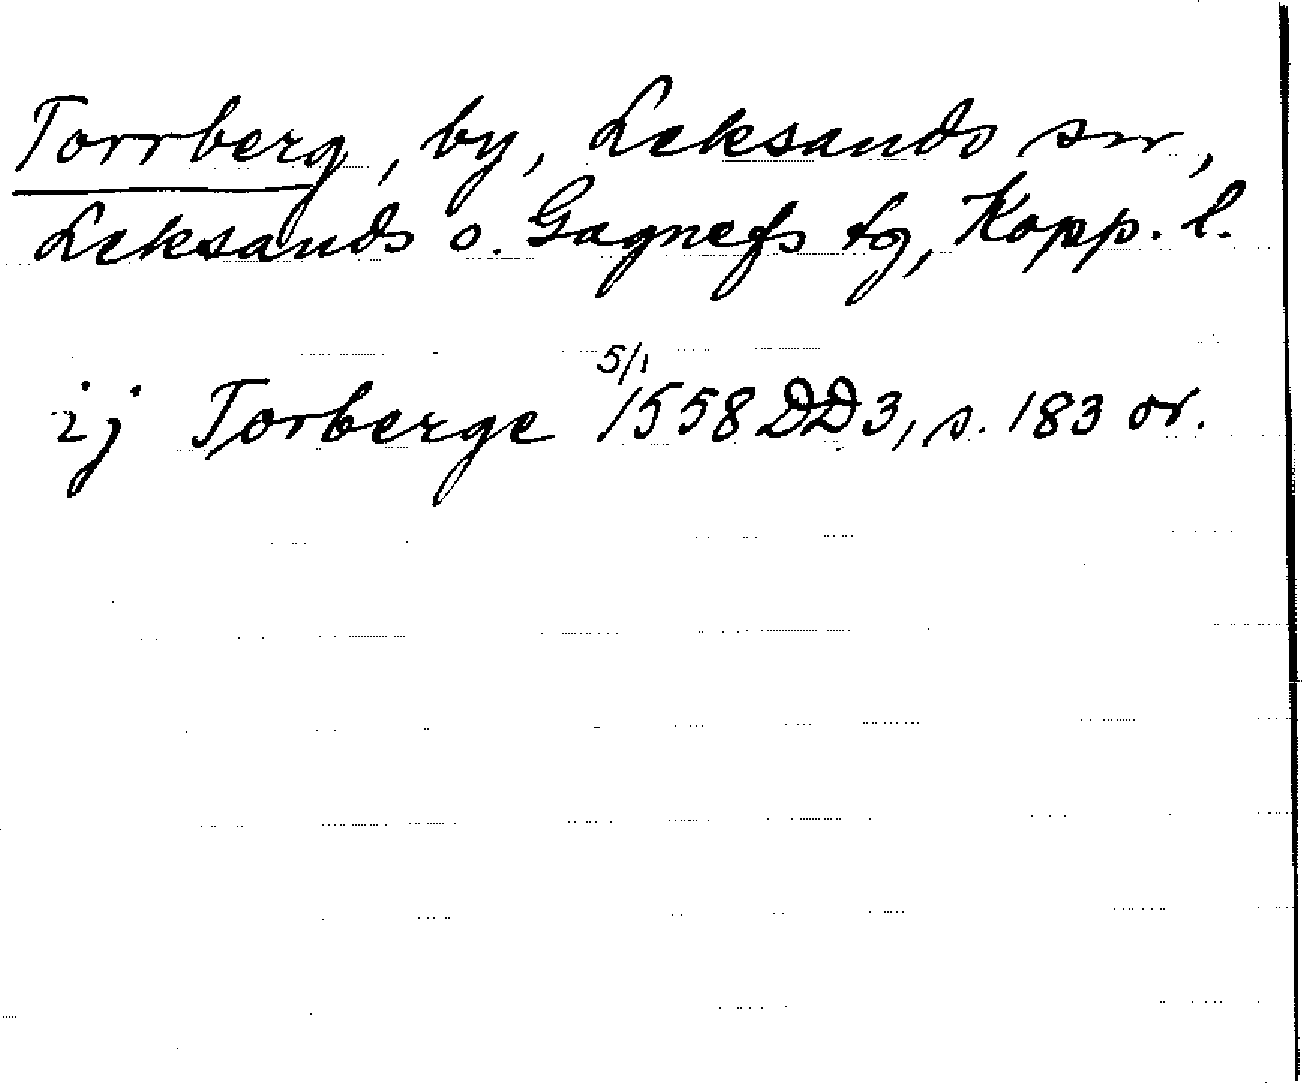 Torrberg, by, Leksands sn,
Leksands o. Gagnefs tg, Kopp. l.
ij Torberge 5/1 1558 DD3, s. 183 or.